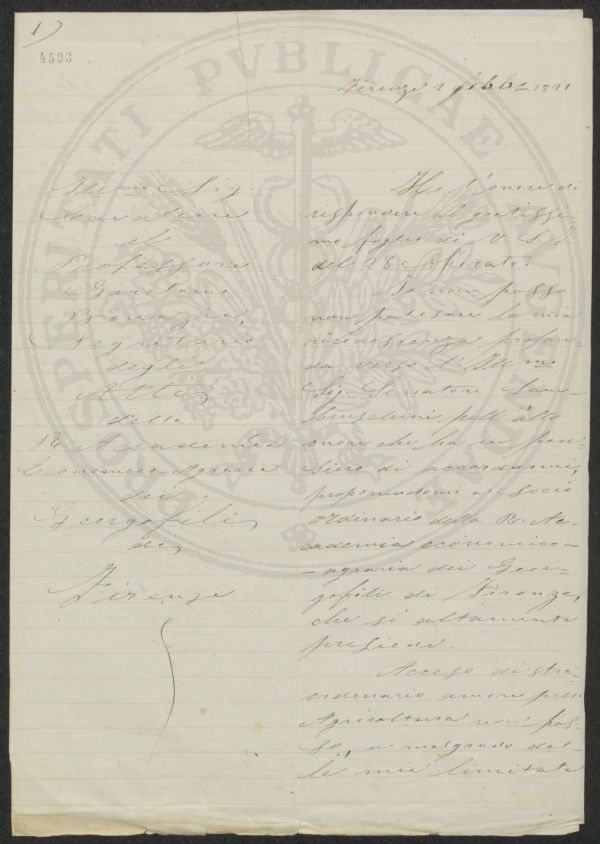 1)
4593
PROSPERITATI PUBLICAE AUGENDAE
Firenze 2 febb. 1871
Illmo Sig.
Cavaliere
il
Professore
Girolamo
Segretario
degli
Atti
della
Rle Accademia
Economico-Agraria
dei
Georgofili
di
Firenze
Ho l'onore di
rispondere al gratissi-
mo foglio di V. S. I.
del 28 spirato.
Io non posso
non palesare la mia
riconoscenza profon-
da verso l'Illmo
Sig. Senatore Lam-
bruschini pell'alto
onore che ha in pen-
siero di accordarmi,
proponendomi a Socio
ordinario della R. Ac-
cademia economico-
-agraria dei Geor-
gofili di Firenze,
che sì altamente
presiede.
Acceso di stra-
ordinario amore per
Agricoltura non pos-
so, a malgrado del-
le mie limitate